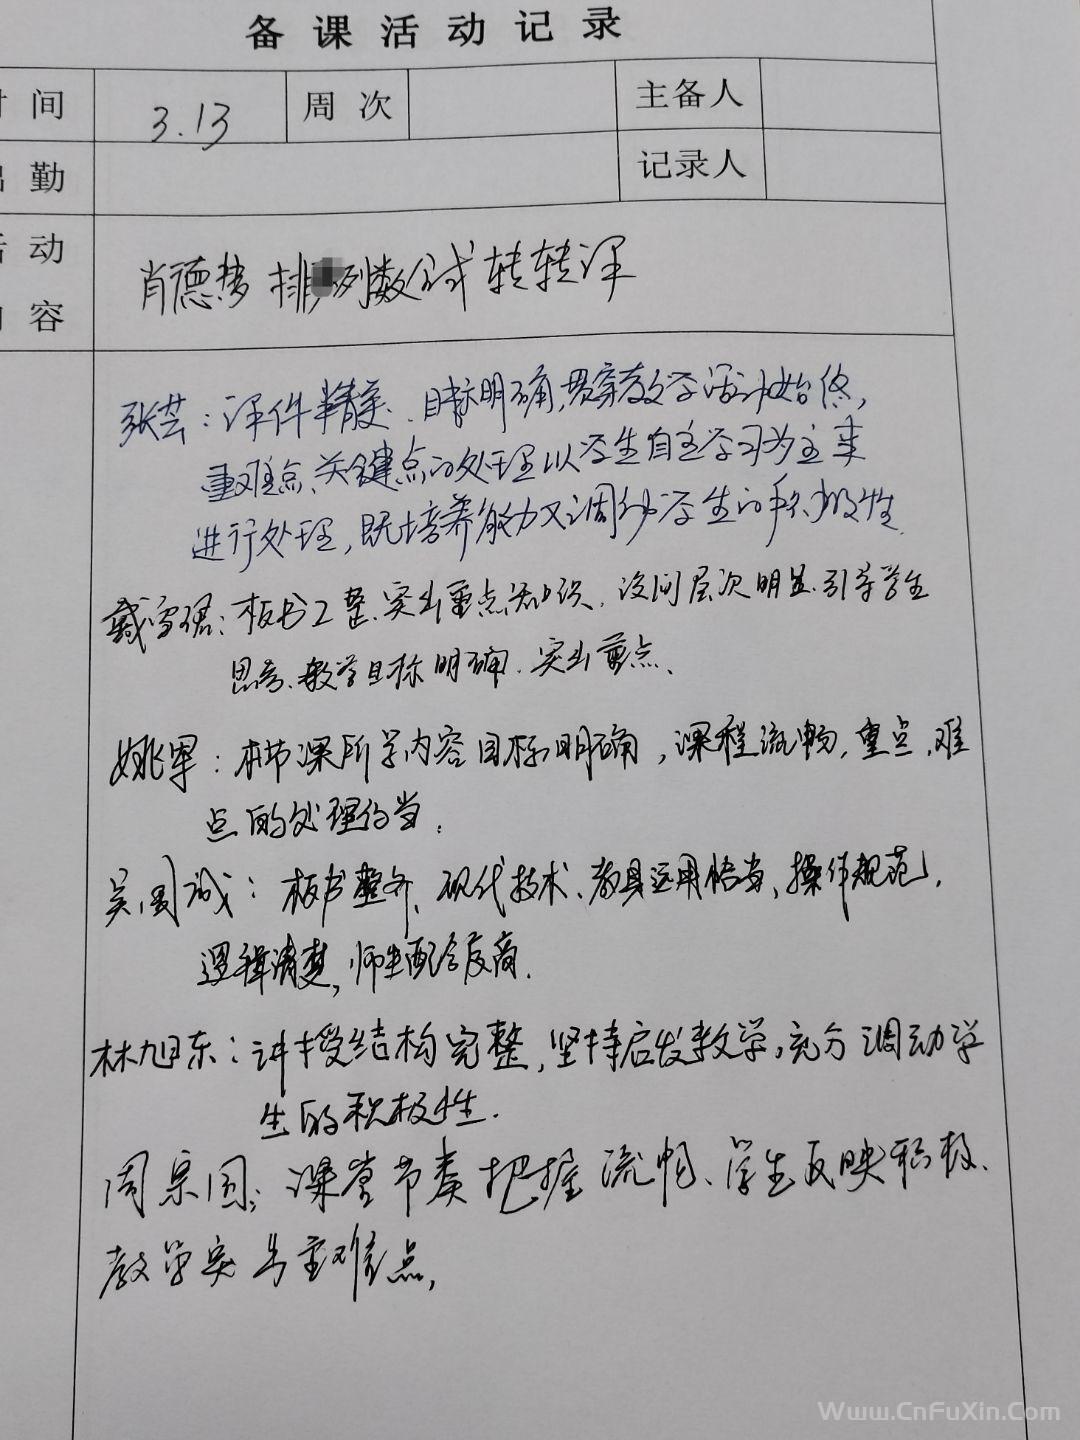 备课活动记录
时间 3.13 周次 主备人
出勤 记录人
活动
内容
肖德梦 排列数公式 转转课
张芸：课件精美、目标明确，贯穿教学活动始终，
重难点、关键点的处理以学生自主学习为主来
进行处理，既培养能力又调动学生的积极性.
戴雪珺：板书工整.突出重点知识.设问层次明显.引导学生
思考、教学目标明确.突出重点、
姚军：本节课所学内容目标明确，课程流畅，重点，难
点的处理恰当.
吴国诚：板书整齐、现代技术、教具运用恰当，操作规范，
逻辑清楚，师生配合度高.
林旭东：讲授结构完整，坚持启发教学，充分调动学
生的积极性.
周宗国：课堂节奏把握流畅、学生反映积极、
教学突出重难点，
Www.CnFuXin.Com